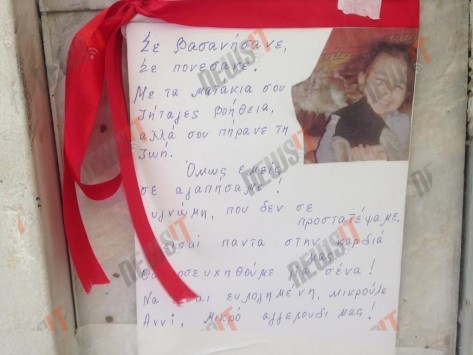 Σε βασανήσανε,
Σε πονέσανε.
Με τα ματάκια σου
ζήταγες βοήθεια,
αλλά σου πήρανε τη
ζωή.
Όμως εμείς
σε αγαπήσαμε!
συγνώμη, που δεν σε
προστατέψαμε,
πάντα στην καρδιά
μας.
προσευχηθούμε για σένα!
Να είσαι ευλογημένη, μικρούλα
Άννι, μικρό αγγελούδι μας!
NEWSIT
NEWSIT
NEWSIT
NEWSIT
NEWSIT